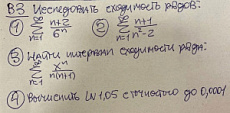 В3 Исследовать сходимость рядов:
① ∞ Σ n=1 (n+2)/6ⁿ ② ∞ Σ n=1 (n+1)/(n²-2)
③ Найти интервал сходимости ряда:
∞ Σ n=1 xⁿ/(n(n+1))
④ Вычислить ln 1,05 с точностью до 0,0001